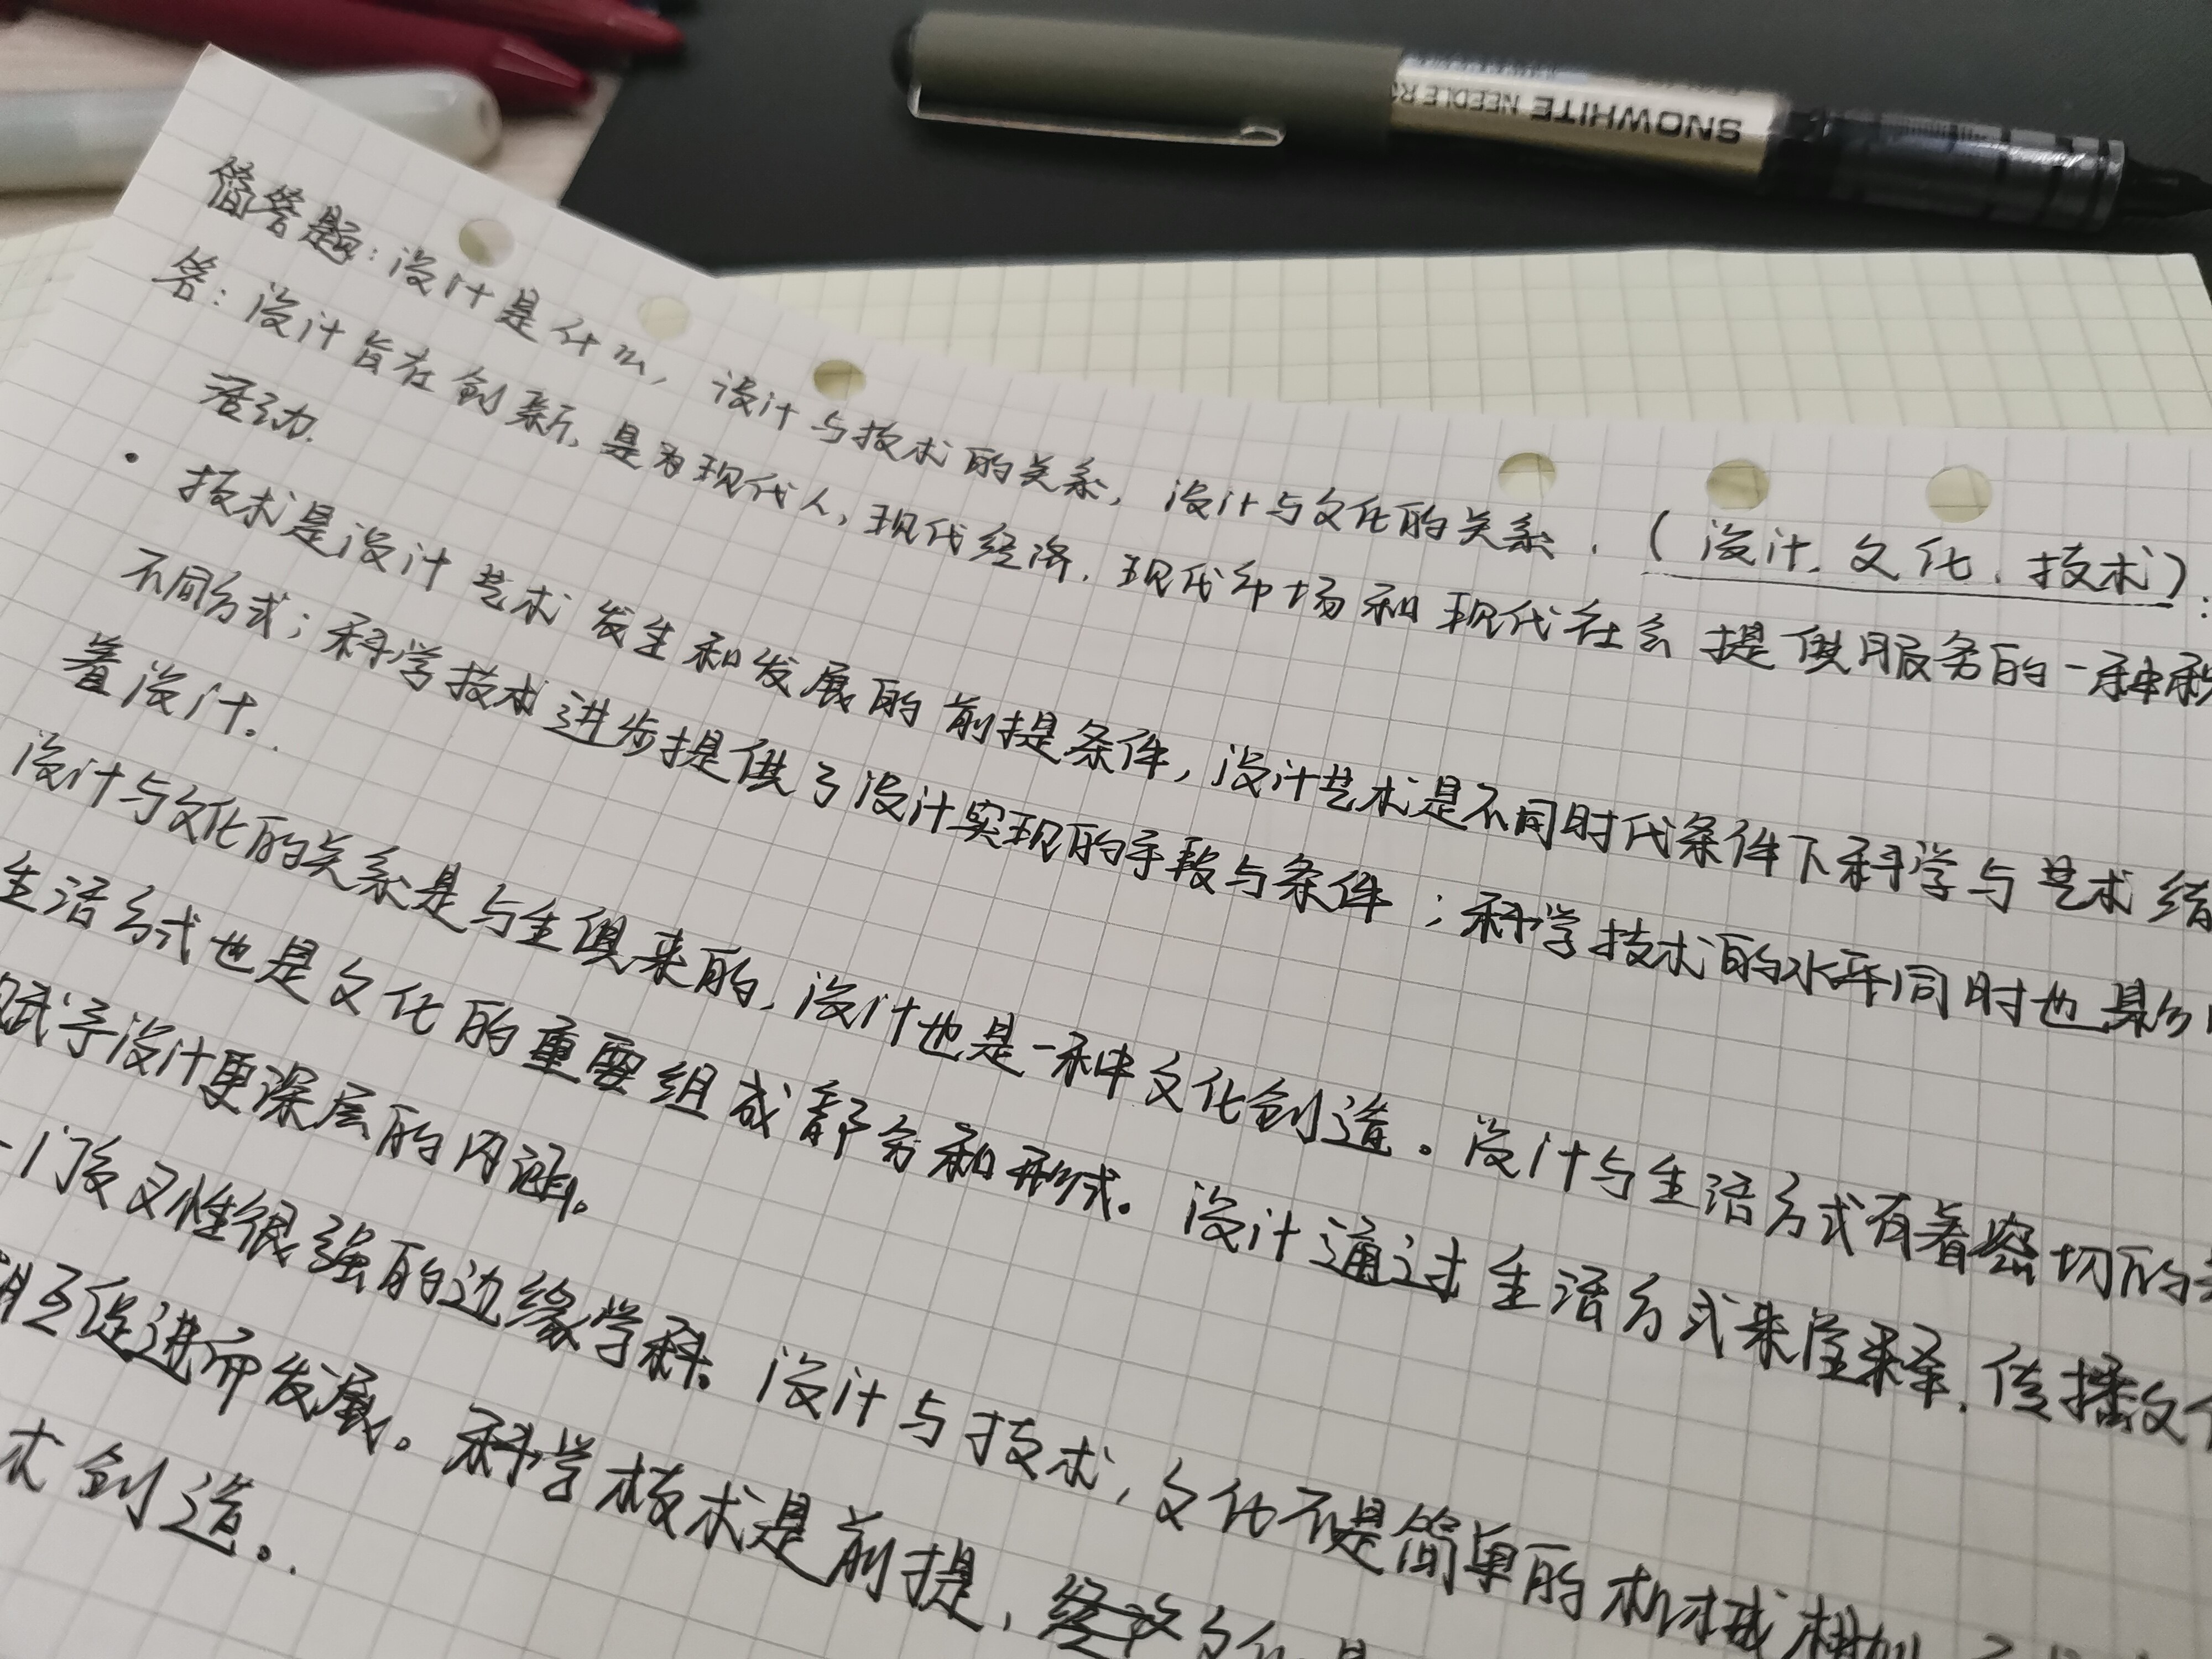 SNOWHITE NEEDLE
简答题：设计是什么，设计与技术的关系，设计与文化的关系．（设计．文化．技术）：
答：设计旨在创新，是为现代人，现代经济．现代市场和现代社会提供服务的一种积
活动．
· 技术是设计艺术发生和发展的前提条件，设计艺术是不同时代条件下科学与艺术结
不同方式；科学技术进步提供了设计实现的手段与条件；科学技术的水平同时也影响
着设计。
设计与文化的关系是与生俱来的，设计也是一种文化创造。设计与生活方式有着密切的
生活方式也是文化的重要组成部分和形式。设计通过生活方式来诠释，传播文
赋予设计更深层的内涵。
一门交叉性很强的边缘学科。设计与技术，文化不是简单的机械相加
相互促进而发展。科学技术是前提，
术创造。